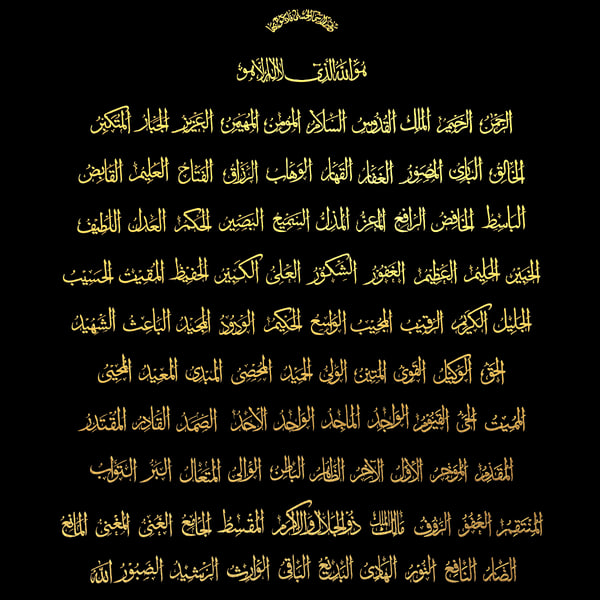 هو الله الذي لا اله الا هو
الرحمن الرحيم الملك القدوس السلام المؤمن المهيمن العزيز الجبار المتكبر
الخالق البارئ المصور الغفار القهار الوهاب الرزاق الفتاح العليم القابض
الباسط الخافض الرافع المعز المذل السميع البصير الحكم العدل اللطيف
الخبير الحليم العظيم الغفور الشكور العلي الكبير الحفيظ المقيت الحسيب
الجليل الكريم الرقيب المجيب الواسع الحكيم الودود المجيد الباعث الشهيد
الحق الوكيل القوي المتين الولي الحميد المحصي المبدئ المعيد المحيي
المميت الحي القيوم الواجد الماجد الواحد الاحد الصمد القادر المقتدر
المقدم المؤخر الأول الآخر الظاهر الباطن الوالي المتعال البر التواب
المنتقم العفو الرؤوف مالك الملك ذو الجلال والاكرام المقسط الجامع الغني المغني المانع
الضار النافع النور الهادي البديع الباقي الوارث الرشيد الصبور الله